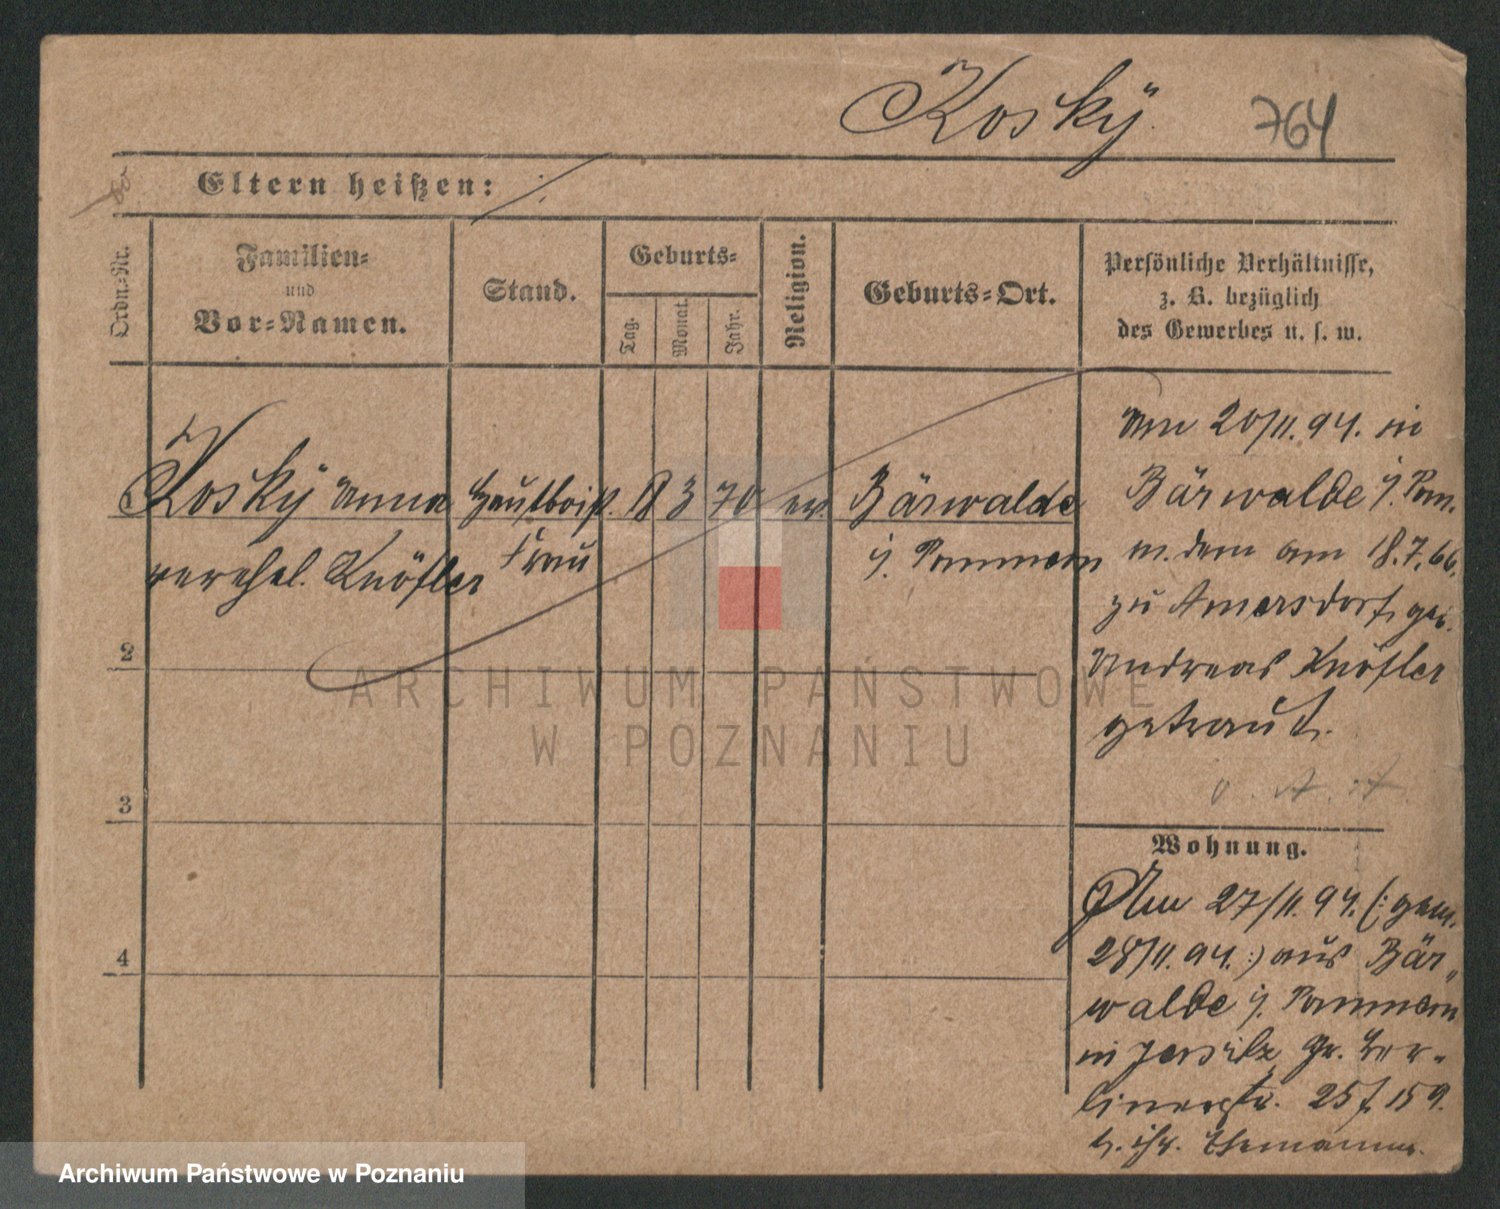 Kosky 764
Eltern heißen:
Ordn.-Nr.
Familien-
und
Vor-Namen.
Stand.
Geburts-
Tag.
Monat.
Jahr.
Religion.
Geburts-Ort.
Persönliche Verhältnisse,
z. B. bezüglich
des Gewerbes u. s. w.
Kosky Anna
verehel. Knöfler
Hautboist.
Frau
8 3 70 ev.
Bärwalde
i. Pommern
2
3
4
Am 20/11. 94. in
Bärwalde i. Pom.
m. dem am 18.7.66.
zu Amersdorf geb.
Andreas Knöfler
getraut.
Wohnung.
Am 27/11. 94. (: gem.
28/11. 94. :) aus Bär-
walde i. Pommern
in Jersitz, Gr. Ber-
linerstr. 25 159.
z. ihr. Ehemanne.
ARCHIWUM PAŃSTWOWE
W POZNANIU
Archiwum Państwowe w Poznaniu